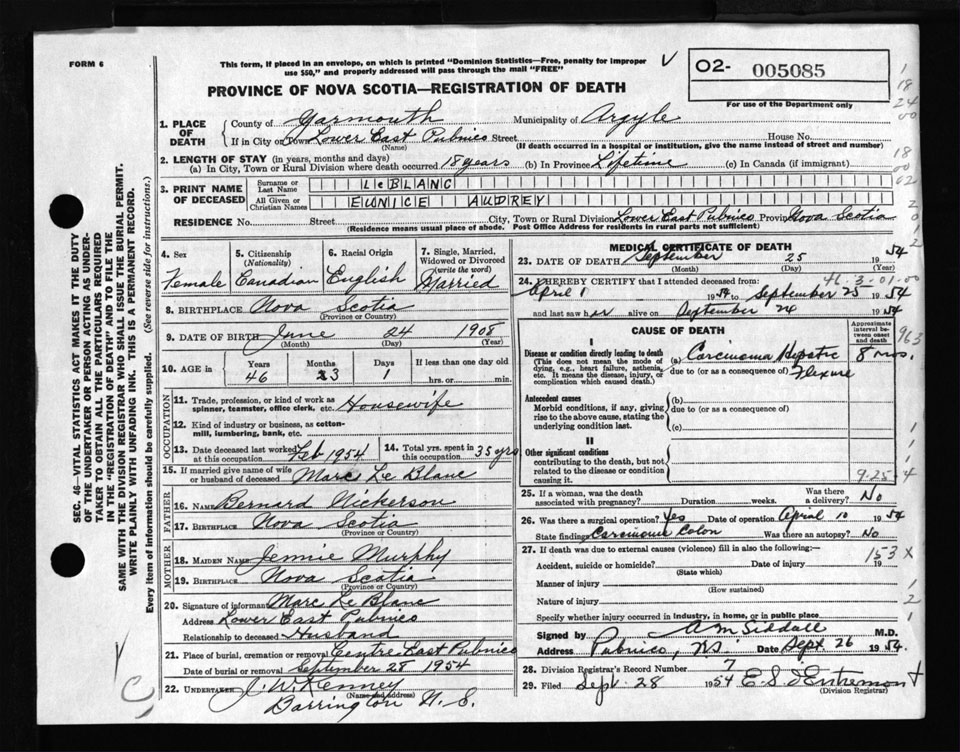 FORM 6
This form, if placed in an envelope, on which is printed "Dominion Statistics—Free, penalty for improper
use $50," and properly addressed will pass through the mail "FREE"
O2- 005085
For use of the Department only
PROVINCE OF NOVA SCOTIA—REGISTRATION OF DEATH
1. PLACE OF DEATH { County of Yarmouth Municipality of Argyle
If in City or Town Lower East Pubnico Street House No.
(Name) (If death occurred in a hospital or institution, give the name instead of street and number)
2. LENGTH OF STAY (in years, months and days)
(a) In City, Town or Rural Division where death occurred 18 years (b) In Province Lifetime (c) In Canada (if immigrant)
3. PRINT NAME OF DECEASED { Surname or Last Name LeBLANC
All Given or Christian Names EUNICE AUDREY
RESIDENCE No. Street City, Town or Rural Division Lower East Pubnico Province Nova Scotia
(Residence means usual place of abode. Post Office Address for residents in rural parts not sufficient)
4. Sex Female
5. Citizenship (Nationality) Canadian
6. Racial Origin English
7. Single, Married, Widowed or Divorced (write the word) Married
8. BIRTHPLACE Nova Scotia
(Province or Country)
9. DATE OF BIRTH June 24 1908
(Month) (Day) (Year)
10. AGE in Years 46 Months 3 Days 1 If less than one day old hrs. or min.
OCCUPATION
11. Trade, profession, or kind of work as spinner, teamster, office clerk, etc. Housewife
12. Kind of industry or business, as cotton-mill, lumbering, bank, etc.
13. Date deceased last worked at this occupation Feb 1954
14. Total yrs. spent in this occupation 35 yrs
15. If married give name of wife or husband of deceased Marc Le Blanc
FATHER
16. NAME Bernard Nickerson
17. BIRTHPLACE Nova Scotia
(Province or Country)
MOTHER
18. MAIDEN NAME Jennie Murphy
19. BIRTHPLACE Nova Scotia
(Province or Country)
20. Signature of informant Marc Le Blanc
Address Lower East Pubnico
Relationship to deceased Husband
21. Place of burial, cremation or removal Centre East Pubnico
Date of burial or removal September 28 1954
22. UNDERTAKER J. W. Kenney
(Name and Address)
Barrington N. S.
MEDICAL CERTIFICATE OF DEATH
23. DATE OF DEATH September 25 1954
(Month) (Day) (Year)
46-3-01-00
24. I HEREBY CERTIFY that I attended deceased from:
April 1 1954 to September 25 1954
and last saw her alive on September 24 1954
CAUSE OF DEATH
Approximate interval between onset and death
I
Disease or condition directly leading to death
(This does not mean the mode of dying, e.g., heart failure, asthenia, etc. It means the disease, injury, or complication which caused death.)
(a) Carcinoma Hepatic 8 mos.
due to (or as a consequence of) Flexure
Antecedent causes
Morbid conditions, if any, giving rise to the above cause, stating the underlying condition last.
(b)
due to (or as a consequence of)
(c)
II
Other significant conditions
contributing to the death, but not related to the disease or condition causing it.
9-25-
25. If a woman, was the death associated with pregnancy? Duration weeks. Was there a delivery? No
26. Was there a surgical operation? Yes Date of operation April 10 1954
State findings Carcinoma Colon Was there an autopsy? No
27. If death was due to external causes (violence) fill in also the following:—
153 X
Accident, suicide or homicide? Date of injury 19
(State which)
Manner of injury
(How sustained)
Nature of injury
Specify whether injury occurred in industry, in home, or in public place
Signed by A M Siddall M.D.
Address Pubnico, N.S. Date Sept 26 1954.
28. Division Registrar's Record Number 7
29. Filed Sept. 28 1954 E S d'Entremont
(Division Registrar)
SEC. 46—VITAL STATISTICS ACT MAKES IT THE DUTY
OF THE UNDERTAKER OR PERSON ACTING AS UNDER-
TAKER TO OBTAIN ALL THE PARTICULARS REQUIRED
IN THE "REGISTRATION OF DEATH" AND TO FILE THE
SAME WITH THE DIVISION REGISTRAR WHO SHALL ISSUE THE BURIAL PERMIT.
WRITE PLAINLY WITH UNFADING INK. THIS IS A PERMANENT RECORD.
Every item of information should be carefully supplied. (See reverse side for instructions.)